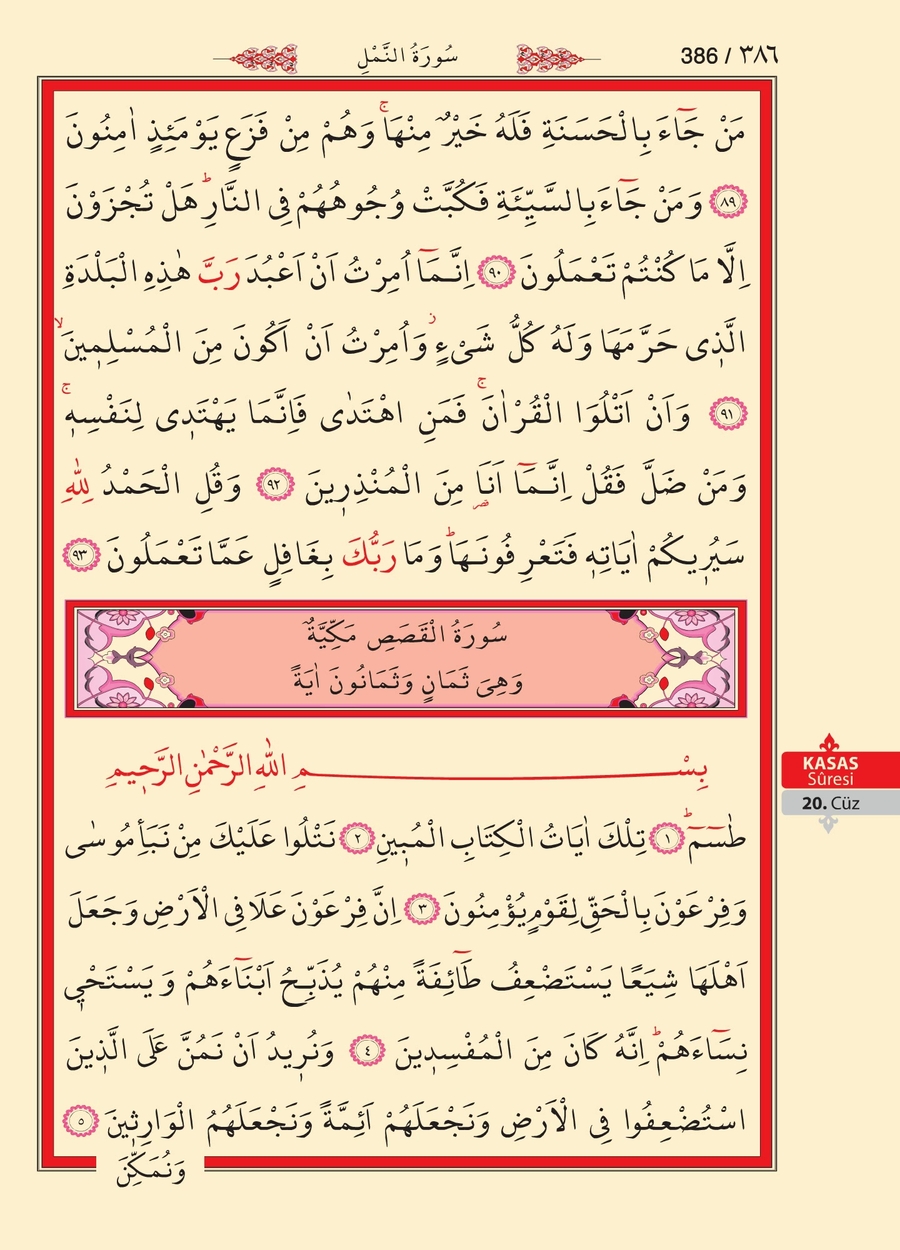 سُورَةُ النَّمْلِ
386 / ٣٨٦
مَنْ جَٓاءَ بِالْحَسَنَةِ فَلَهُ خَيْرٌ مِنْهَاۚ وَهُمْ مِنْ فَزَعٍ يَوْمَئِذٍ اٰمِنُونَ
﴿٨٩﴾ وَمَنْ جَٓاءَ بِالسَّيِّئَةِ فَكُبَّتْ وُجُوهُهُمْ فِى النَّارِۜ هَلْ تُجْزَوْنَ
اِلَّا مَا كُنْتُمْ تَعْمَلُونَ ﴿٩٠﴾ اِنَّمَٓا اُمِرْتُ اَنْ اَعْبُدَ رَبَّ هٰذِهِ الْبَلْدَةِ
الَّذ۪ى حَرَّمَهَا وَلَهُ كُلُّ شَىْءٍۘ وَاُمِرْتُ اَنْ اَكُونَ مِنَ الْمُسْلِم۪ينَۙ
﴿٩١﴾ وَاَنْ اَتْلُوَا الْقُرْاٰنَۚ فَمَنِ اهْتَدٰى فَاِنَّمَا يَهْتَد۪ى لِنَفْسِه۪ۚ
وَمَنْ ضَلَّ فَقُلْ اِنَّمَٓا اَنَا۬ مِنَ الْمُنْذِر۪ينَ ﴿٩٢﴾ وَقُلِ الْحَمْدُ لِلّٰهِ
سَيُر۪يكُمْ اٰيَاتِه۪ فَتَعْرِفُونَهَاۜ وَمَا رَبُّكَ بِغَافِلٍ عَمَّا تَعْمَلُونَ ﴿٩٣﴾
سُورَةُ الْقَصَصِ مَكِّيَّةٌ
وَهِىَ ثَمَانٍ وَثَمَانُونَ اٰيَةً
بِسْمِ اللّٰهِ الرَّحْمٰنِ الرَّح۪يمِ
طٰسٓمٓۜ ﴿١﴾ تِلْكَ اٰيَاتُ الْكِتَابِ الْمُب۪ينِ ﴿٢﴾ نَتْلُوا عَلَيْكَ مِنْ نَبَأِ مُوسٰى
وَفِرْعَوْنَ بِالْحَقِّ لِقَوْمٍ يُؤْمِنُونَ ﴿٣﴾ اِنَّ فِرْعَوْنَ عَلَا فِى الْاَرْضِ وَجَعَلَ
اَهْلَهَا شِيَعًا يَسْتَضْعِفُ طَٓائِفَةً مِنْهُمْ يُذَبِّحُ اَبْنَٓاءَهُمْ وَيَسْتَحْي۪
نِسَٓاءَهُمْۜ اِنَّهُ كَانَ مِنَ الْمُفْسِد۪ينَ ﴿٤﴾ وَنُر۪يدُ اَنْ نَمُنَّ عَلَى الَّذ۪ينَ
اسْتُضْعِفُوا فِى الْاَرْضِ وَنَجْعَلَهُمْ اَئِمَّةً وَنَجْعَلَهُمُ الْوَارِث۪ينَ ﴿٥﴾
وَنُمَكِّنَ
KASAS
Sûresi
20. Cüz